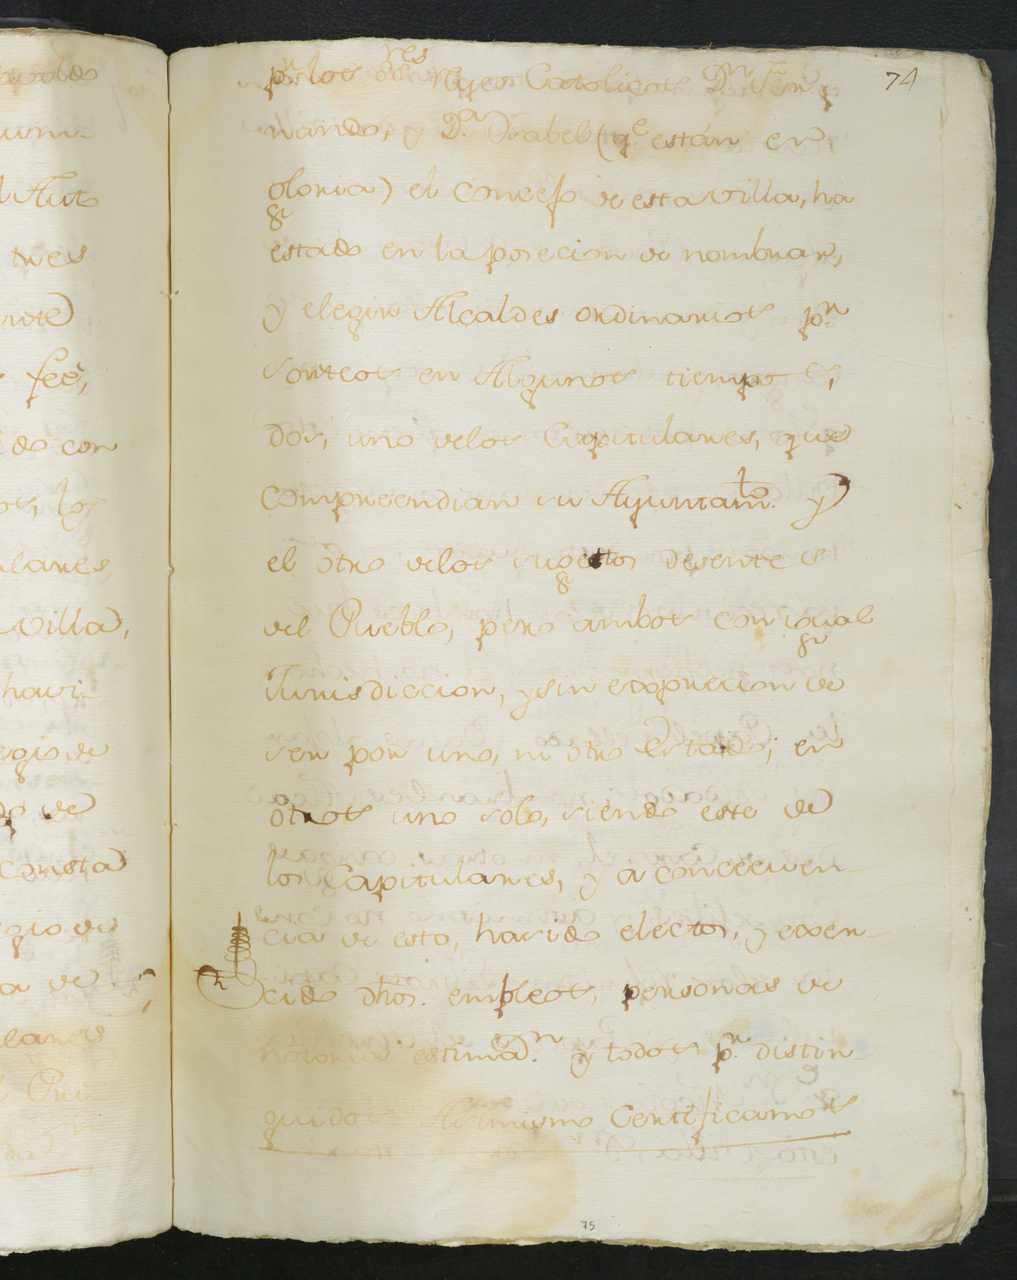 74
p.r los S.res Reyes Catolicos D.n Fer
nando, y D.a Isabel (q.e están en
gloria) el concejo de esta Villa, ha
estado en la posecion de nombrar,
y elegir Alcaldes ordinarios p.r
sorteos en Algunos tiempos
dos, uno delos Capitulares, que
compreendian su Ayuntam.to y
el otro delos sugettos desente
del Pueblo, pero ambos con igual
Jurisdiccion, y sin expresion de
ser por uno, ni otro Estado; en
otros uno solo, siendo este de
los Capitulares, y a consecuen
cia de esto, havido electos, y exer
cido dhos. empleos, personas de
notoria estimaz.n y todos p.r distin
guidos Asimismo Certificamos
75